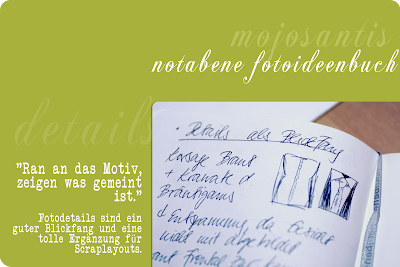 mojosantis
notabene fotoideenbuch
details
"Ran an das Motiv,
zeigen was gemeint
ist."
Fotodetails sind ein
guter Blickfang und eine
tolle Ergänzung für
Scraplayouts.
• Details als Blickfang
Corsage Braut
+ Krawatte d
Bräutigams
d Entspannung, da Gesicht
nicht mit abgebildet